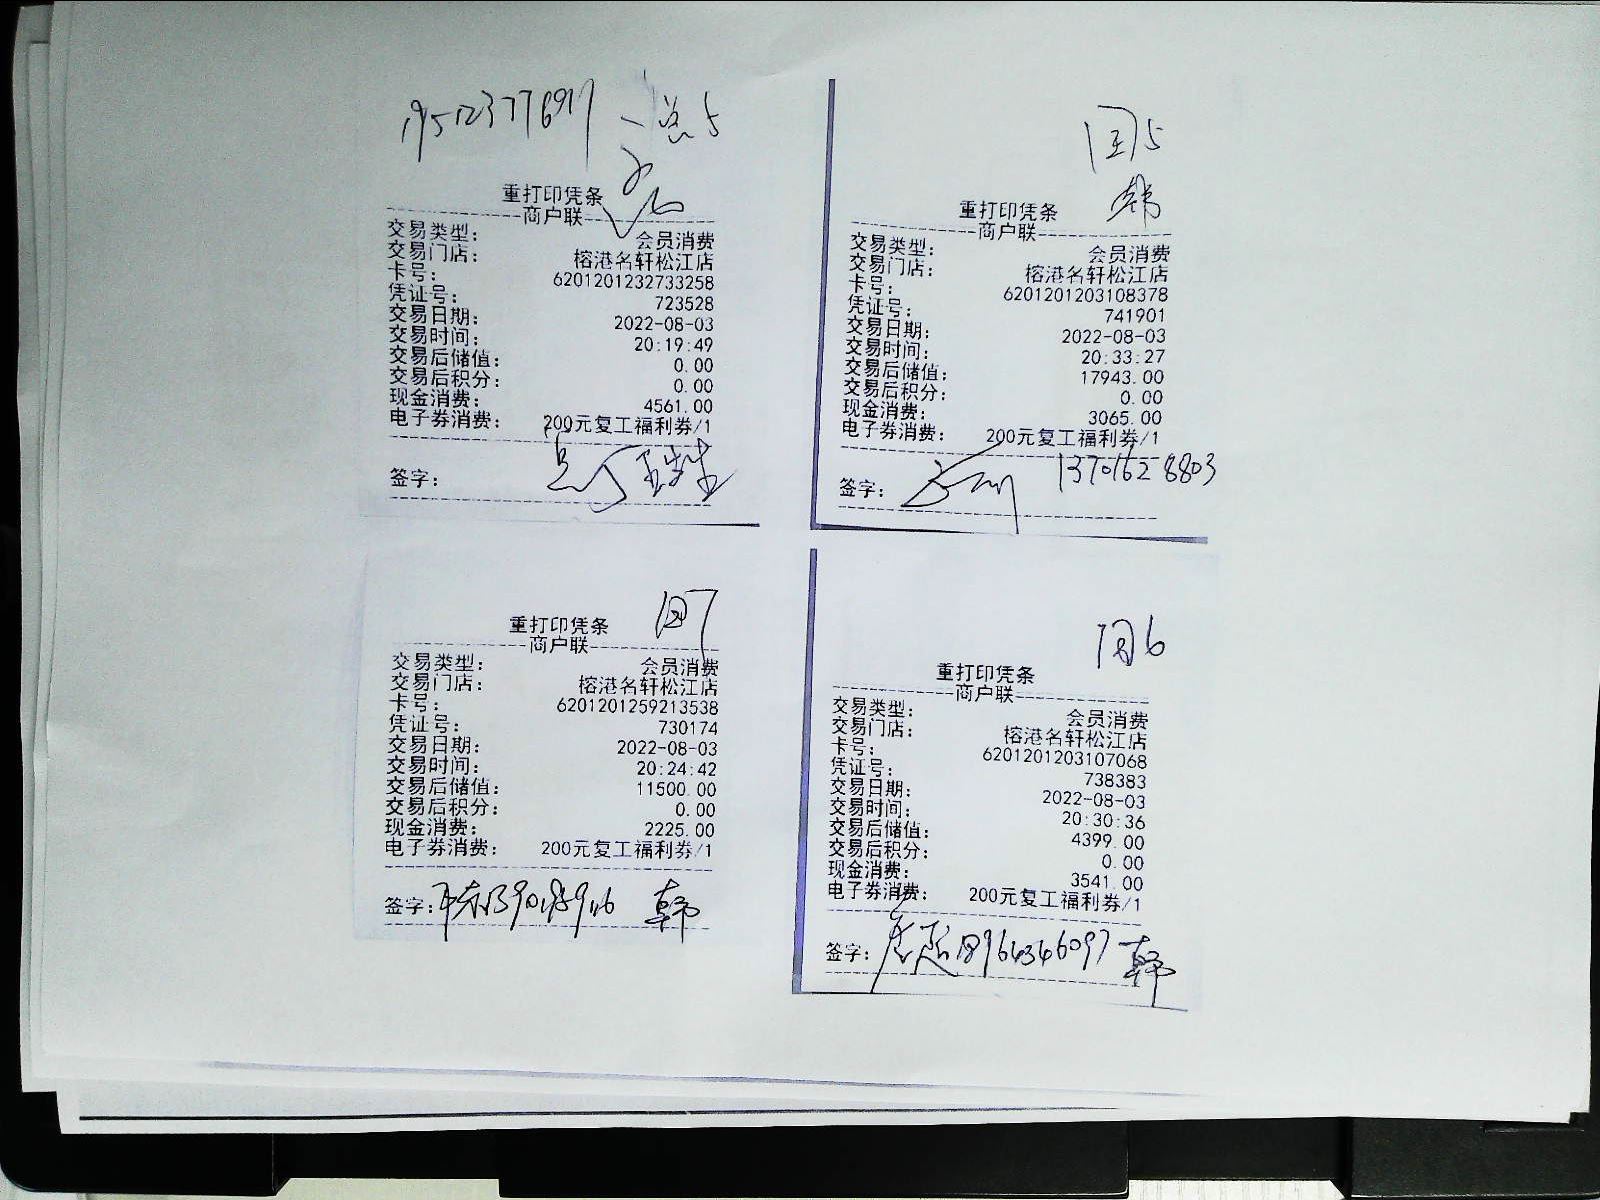 19512377697
总5
重打印凭条
商户联
交易类型: 会员消费
交易门店: 榕港名轩松江店
卡号: 6201201232733258
凭证号: 723528
交易日期: 2022-08-03
交易时间: 20:19:49
交易后储值: 0.00
交易后积分: 0.00
现金消费: 4561.00
电子券消费: 200元复工福利券/1
签字:
5
韩
重打印凭条
商户联
交易类型: 会员消费
交易门店: 榕港名轩松江店
卡号: 6201201203108378
凭证号: 741901
交易日期: 2022-08-03
交易时间: 20:33:27
交易后储值: 17943.00
交易后积分: 0.00
现金消费: 3065.00
电子券消费: 200元复工福利券/1
签字: 13701628803
7
重打印凭条
商户联
交易类型: 会员消费
交易门店: 榕港名轩松江店
卡号: 6201201259213538
凭证号: 730174
交易日期: 2022-08-03
交易时间: 20:24:42
交易后储值: 11500.00
交易后积分: 0.00
现金消费: 2225.00
电子券消费: 200元复工福利券/1
签字: 韩
6
重打印凭条
商户联
交易类型: 会员消费
交易门店: 榕港名轩松江店
卡号: 6201201203107068
凭证号: 738383
交易日期: 2022-08-03
交易时间: 20:30:36
交易后储值: 4399.00
交易后积分: 0.00
现金消费: 3541.00
电子券消费: 200元复工福利券/1
签字: 韩